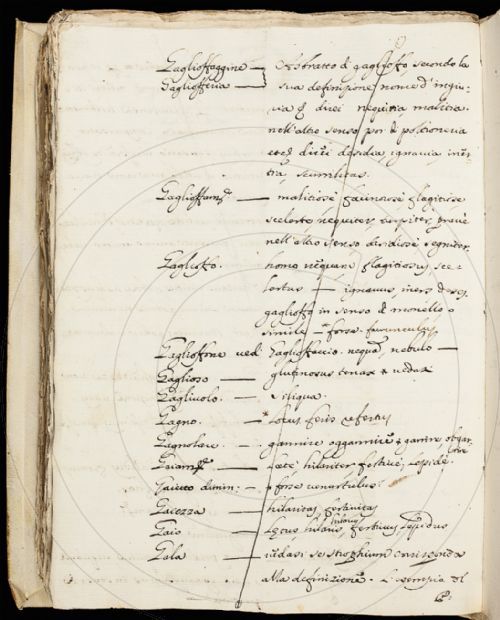 Gaglioffaggine — Astratto di gaglioffo, secondo la
Gaglofferia — sua definizione nome d'ingiu-
ria q̃ direi nequitia malitia.
nell'altro senso poi di poltroneria
direi desidia, ignavia iner-
tia, scurrilitas.
Gaglioffam.te — malitiosè flagitiosè
scelestè nequiter, turpiter, pravè
nell'altro senso desidiosè segniter.
Gaglioffo. homo nequam flagitiosus sce-
lestus — ignavus, iners deses.
gaglioffo in senso di monello o
simile — forse furunculus
Gaglioffone ved. Gaglioffaccio. nequã, nebulo —
Gaglioso — glutinosus tenax
Gagliuolo. — siliqua.
Gagno. — Locus feris refertus
Gagnolare. — gannire oggannire
Gaiam.te — Laetè, hilariter festivè, lepidè.
Gaietto dimin. — forse venustulus
Gaiezza — hilaritas festivitas
Gaio — Laetus, hilaris, festivus, lepidus
Gala — vedasi se strophium corrisponda
alla definizione. L'esempio del